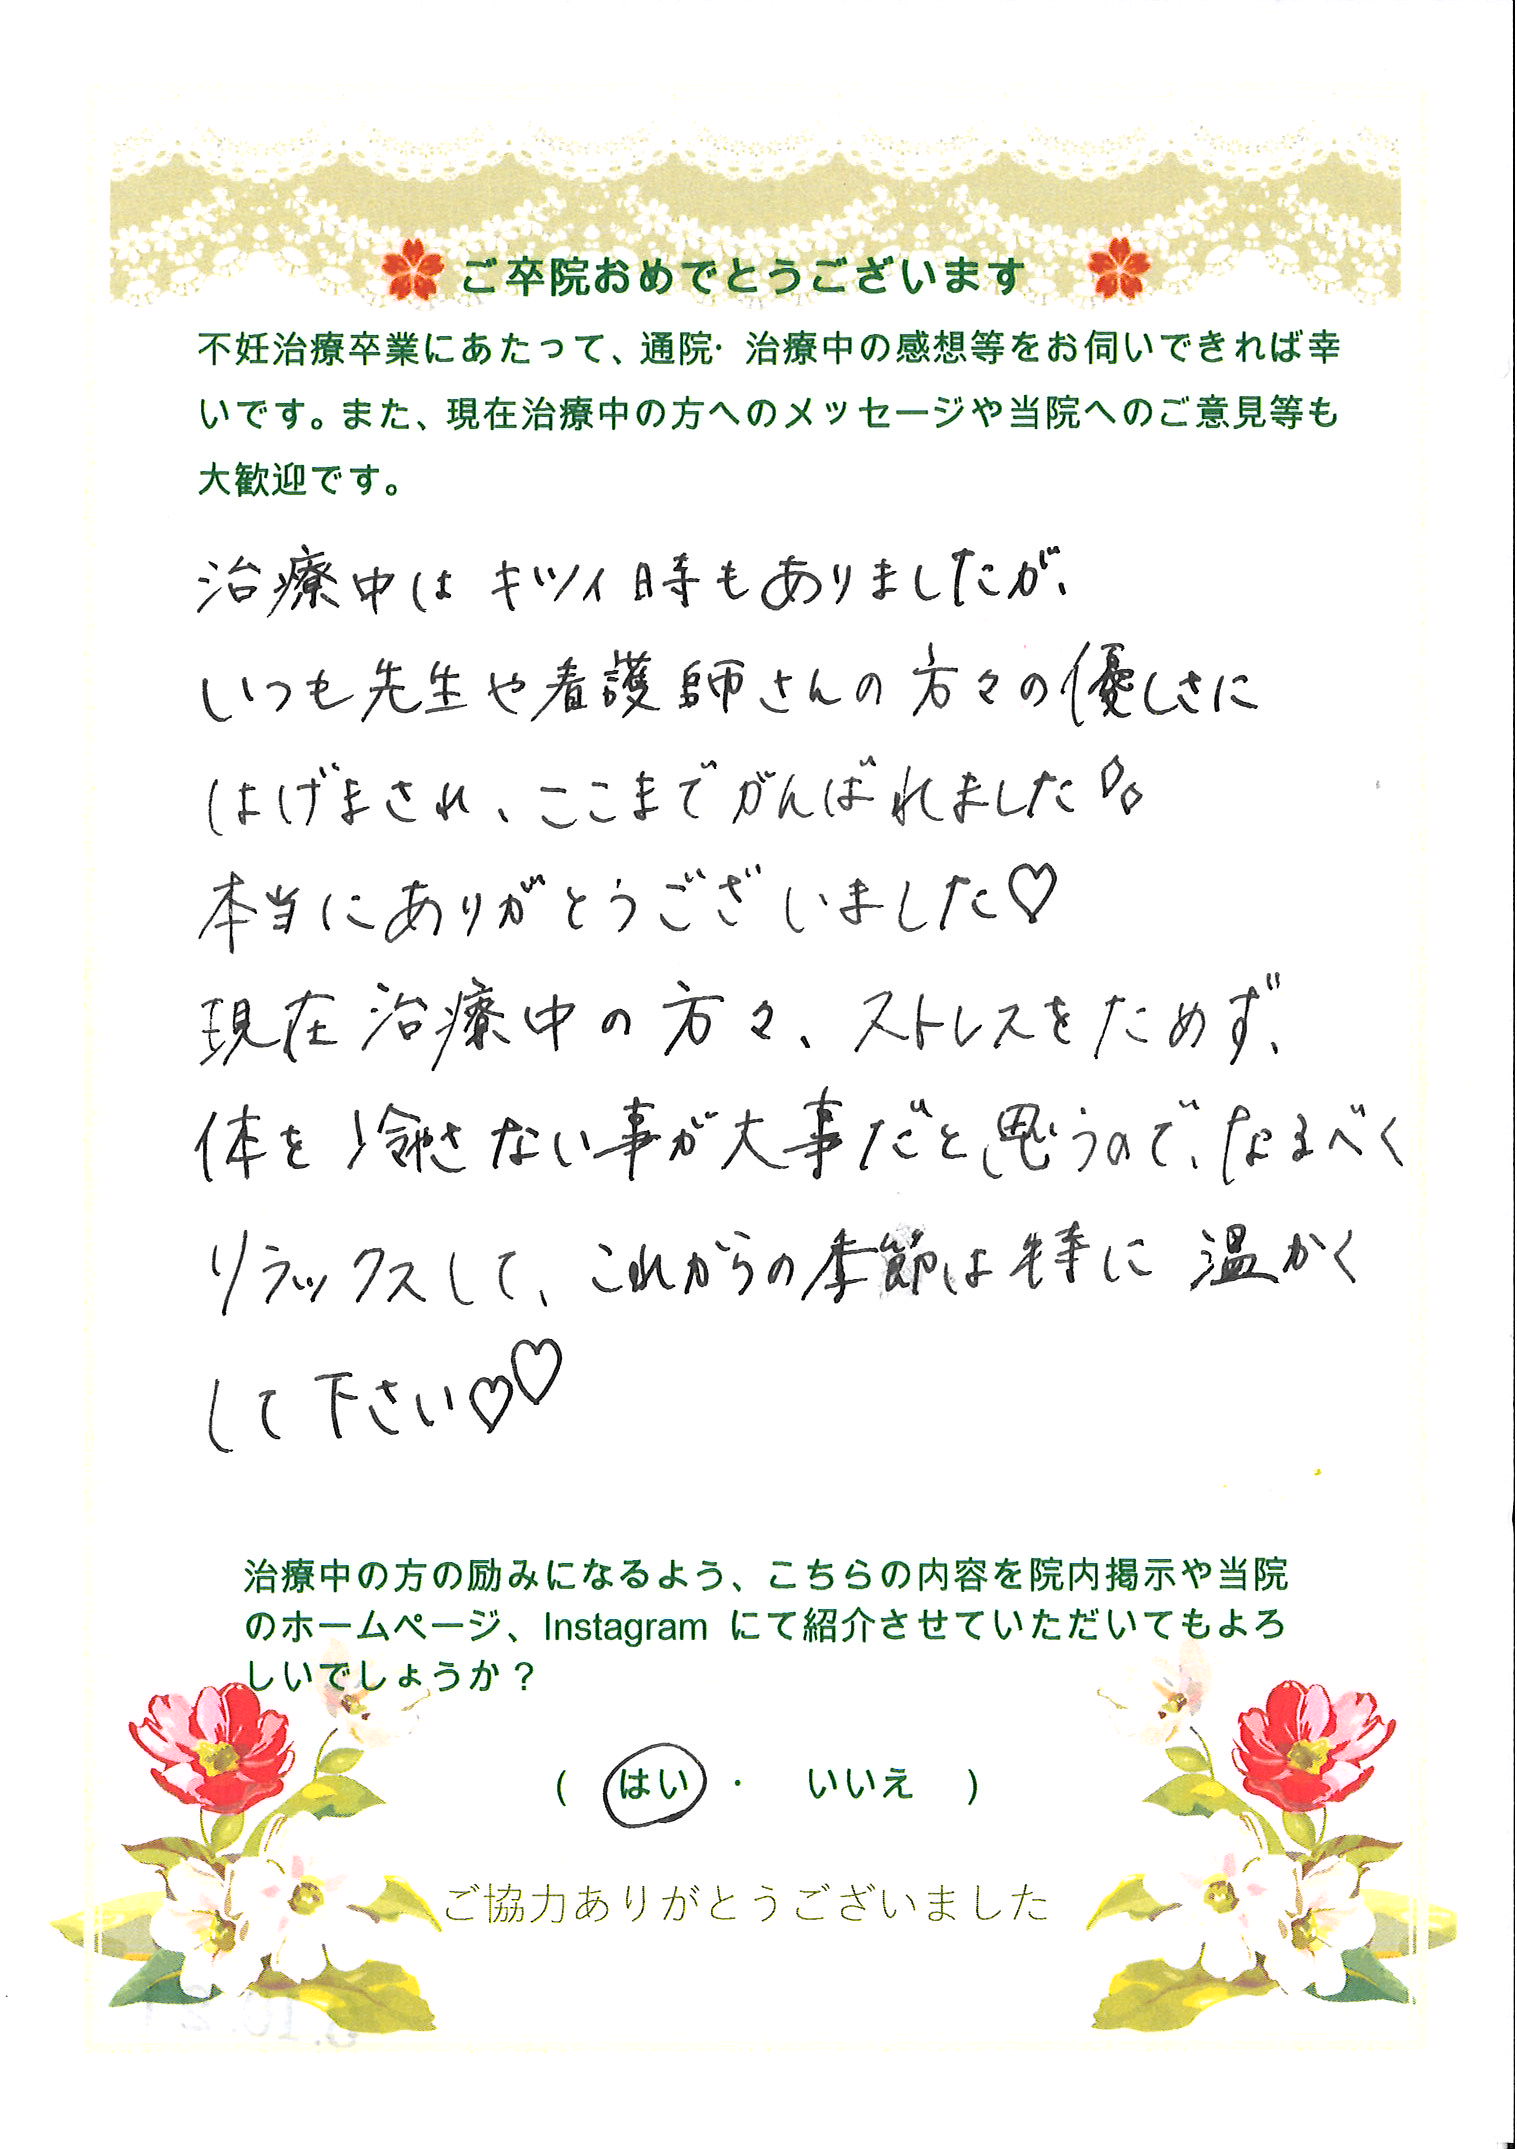 ご卒院おめでとうございます
不妊治療卒業にあたって、通院・治療中の感想等をお伺いできれば幸
いです。また、現在治療中の方へのメッセージや当院へのご意見等も
大歓迎です。
治療中は キツイ時もありましたが、
いつも先生や看護師さんの方々の優しさに
はげまされ、ここまでがんばれました
本当にありがとうございました♡
現在治療中の方々、ストレスをためず、
体を冷やさない事が大事だと思うので、なるべく
リラックスして、これからの季節は特に温かく
して下さい♡♡
治療中の方の励みになるよう、こちらの内容を院内掲示や当院
のホームページ、Instagram にて紹介させていただいてもよろ
しいでしょうか？
( はい ・ いいえ )
ご協力ありがとうございました